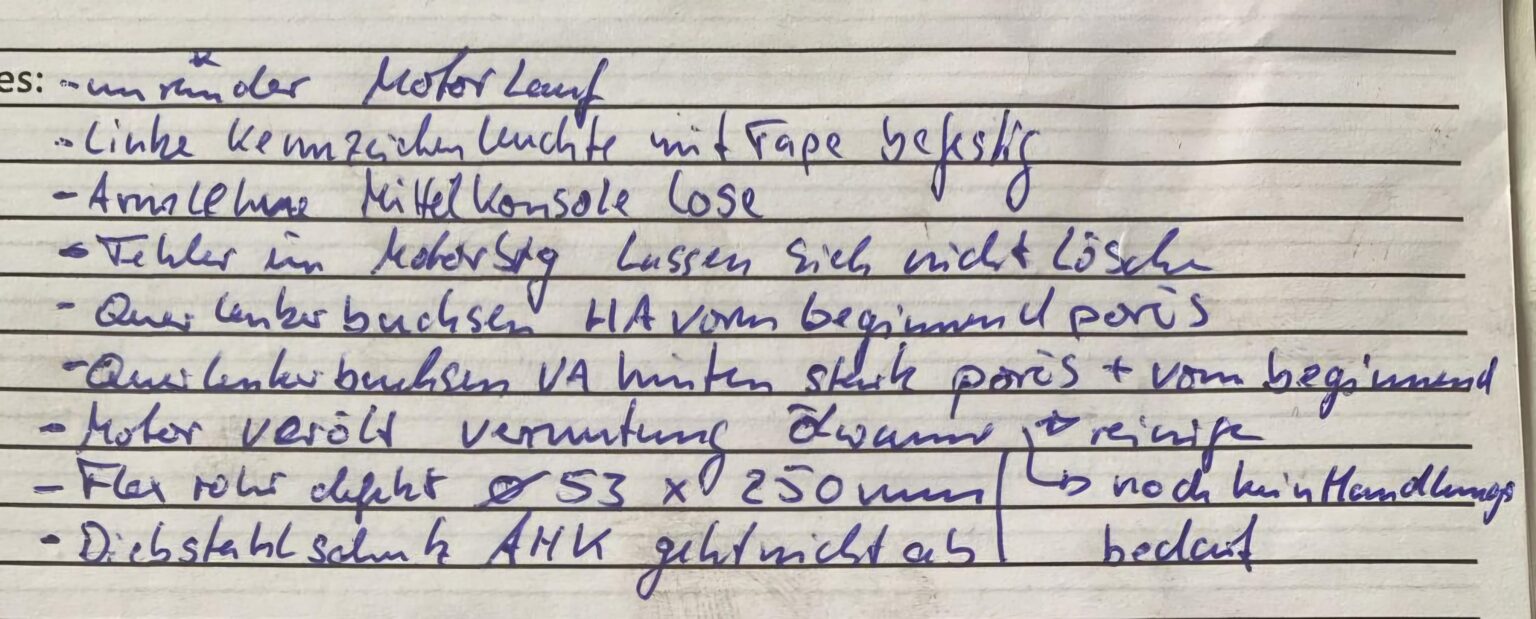 es: - unründer Motorlauf
- Linke Kennzeichenleuchte mit Tape befestig
- Armlehne Mittelkonsole lose
- Fehler im Motorstg lassen sich nicht lösche
- Querlenkerbuchsen HA vorn beginnend porös
- Querlenkerbuchsen VA hinten stark porös + vorn beginnend
- Motor verölt vermutung Ölwanne → reinige
- Flexrohr defekt ⌀ 53 x 250 mm ↳ noch kein Handlungs
- Diebstahlschutz AHK geht nicht ab bedarf